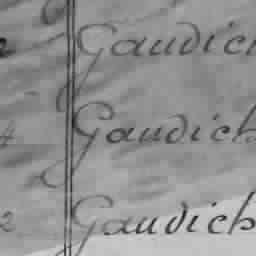 Gaudich
4 Gaudich
2 Gaudich